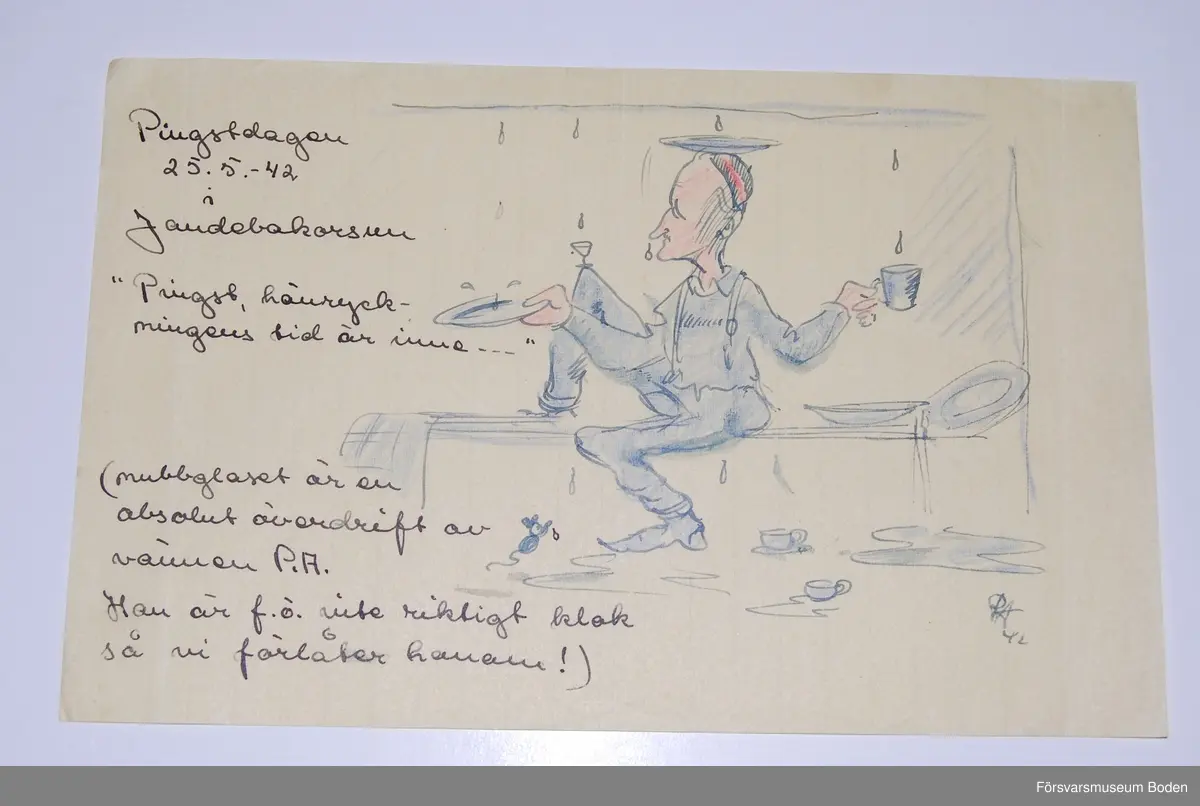 Pingstdagen
25.5.-42
i
Jandebakorsun
"Pingst, hänryck-
ningens tid är inne ---"
(nubbglaset är en
absolut överdrift av
vännen P.A.
Han är f.ö. inte riktigt klok
så vi förlåter honom!)
PA
42
Försvarsmuseum Boden